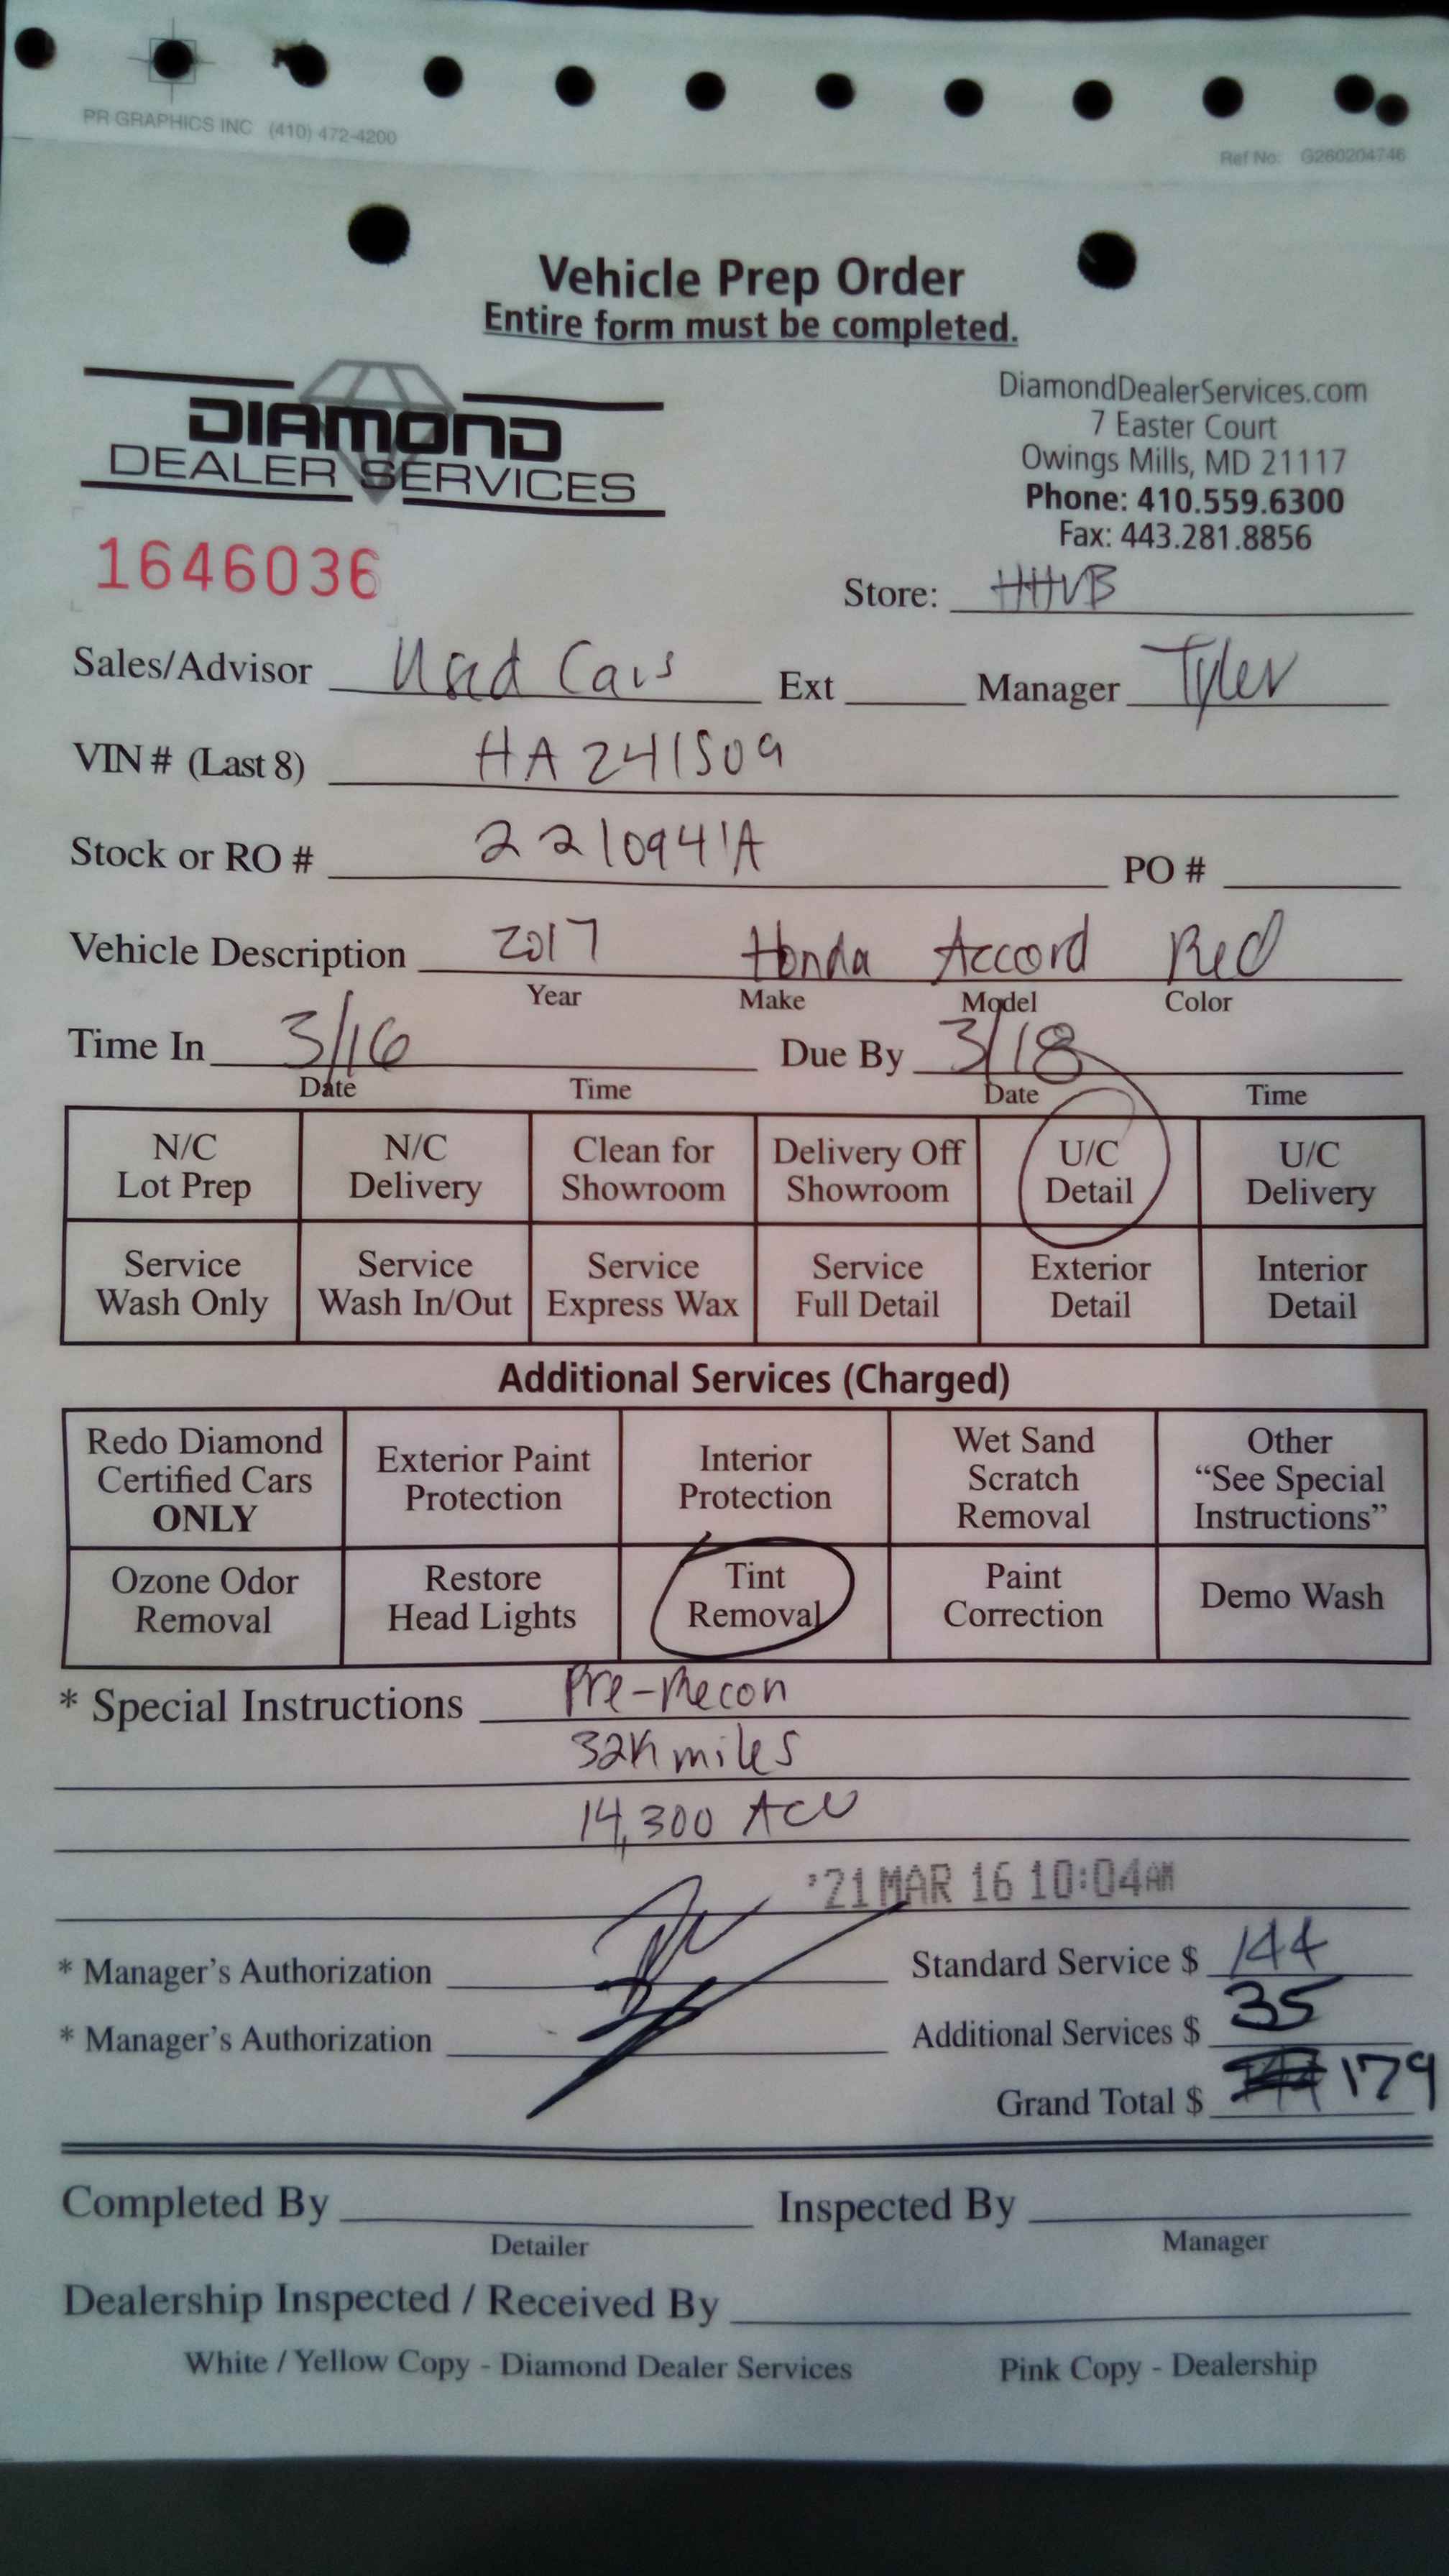 PR GRAPHICS INC (410) 472-4200
Ref No: G260204746
Vehicle Prep Order
Entire form must be completed.
DIAMOND
DEALER SERVICES
DiamondDealerServices.com
7 Easter Court
Owings Mills, MD 21117
Phone: 410.559.6300
Fax: 443.281.8856
1646036
Store: HHVB
Sales/Advisor Used Cars Ext Manager Tyler
VIN # (Last 8) HA241509
Stock or RO # 2210941A PO #
Vehicle Description 2017 Honda Accord Red
Year Make Model Color
Time In 3/16 Due By 3/18
Date Time Date Time
N/C Lot Prep N/C Delivery Clean for Showroom Delivery Off Showroom U/C Detail U/C Delivery
Service Wash Only Service Wash In/Out Service Express Wax Service Full Detail Exterior Detail Interior Detail
Additional Services (Charged)
Redo Diamond Certified Cars ONLY Exterior Paint Protection Interior Protection Wet Sand Scratch Removal Other "See Special Instructions"
Ozone Odor Removal Restore Head Lights Tint Removal Paint Correction Demo Wash
* Special Instructions Pre-Recon
32K miles
14,300 ACV
'21 MAR 16 10:04AM
* Manager's Authorization Standard Service $ 144
* Manager's Authorization Additional Services $ 35
Grand Total $ 179
Completed By Inspected By
Detailer Manager
Dealership Inspected / Received By
White / Yellow Copy - Diamond Dealer Services Pink Copy - Dealership